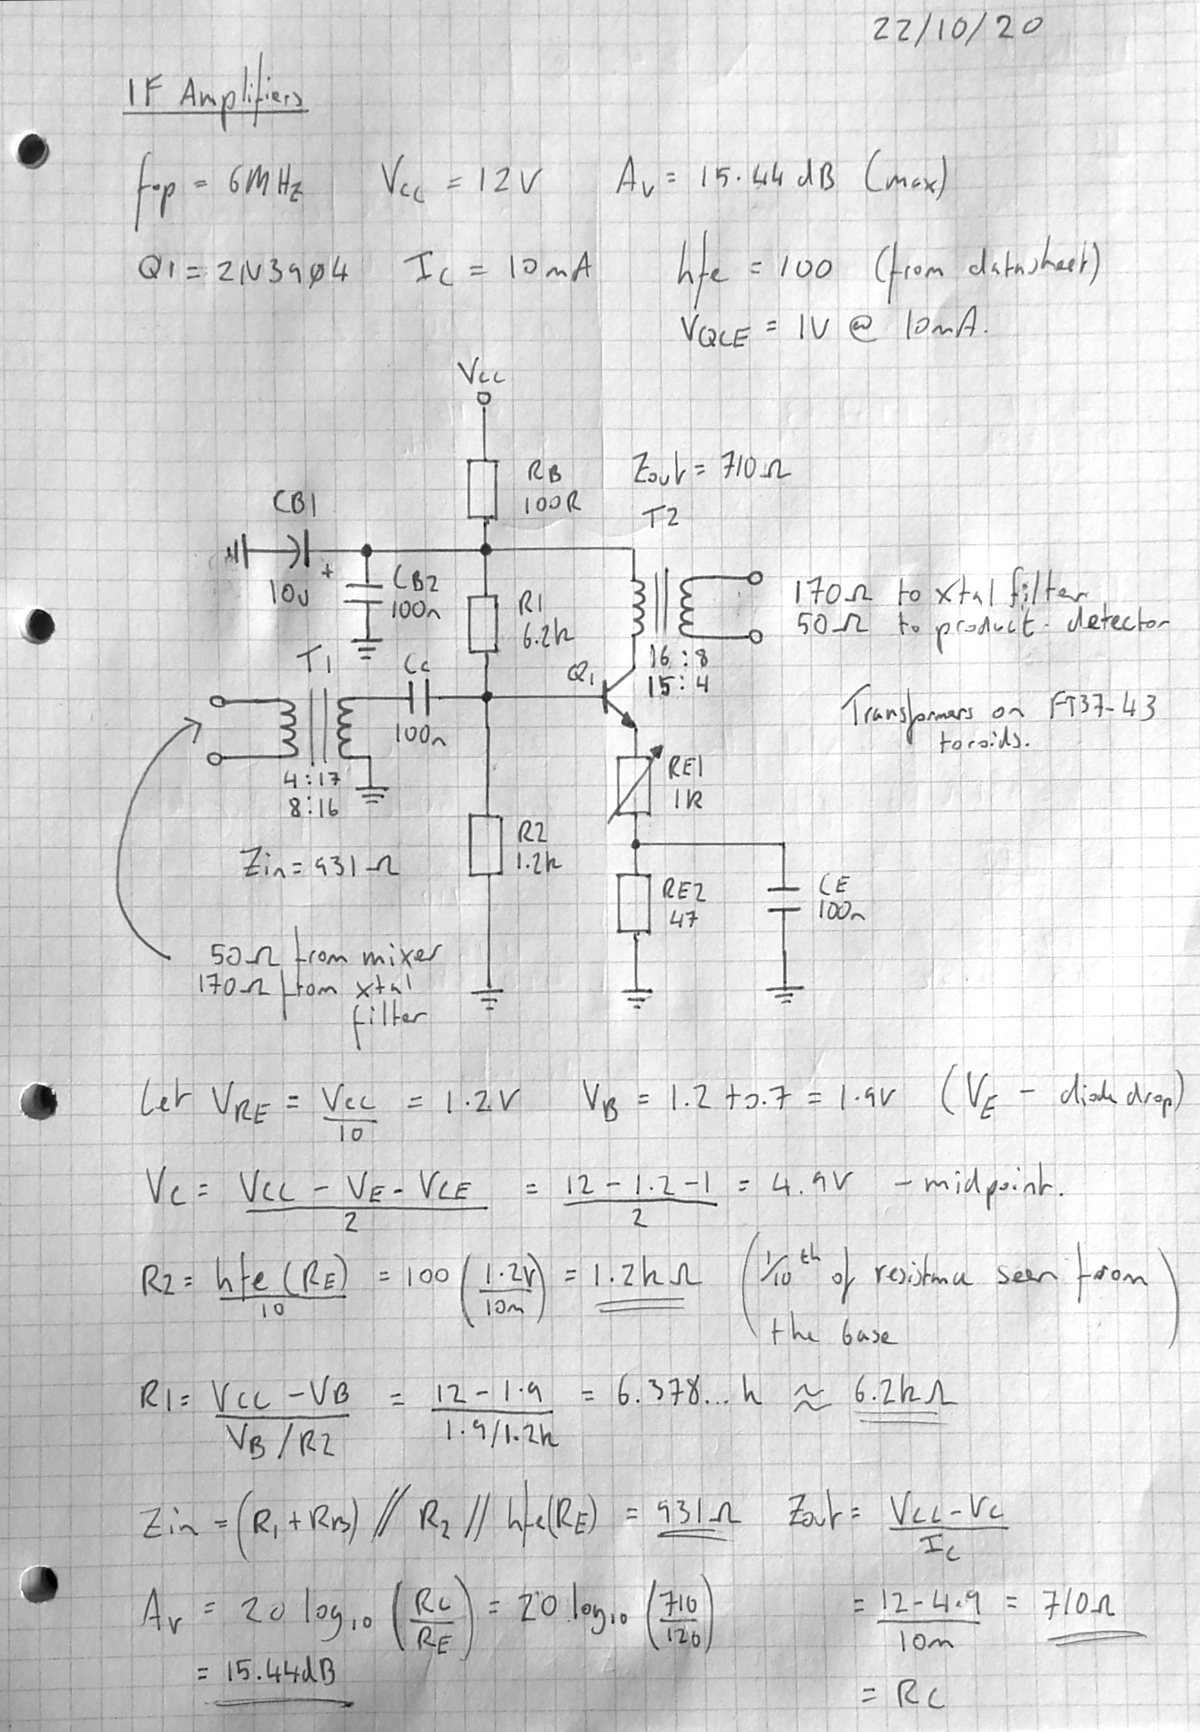 22/10/20
IF Amplifiers
fop = 6MHz Vcc = 12V Av = 15.44 dB (max)
Q1 = 2N3904 Ic = 10mA hfe = 100 (from datasheet)
VQCE = 1V @ 10mA.
Vcc
RB
100R
Zout = 710Ω
T2
CB1
10u +
CB2
100n
R1
6.2k
170Ω to xtal filter
50Ω to product detector
16:8
15:4
Q1
T1
Cc
100n
Transformers on FT37-43
toroids.
4:17
8:16
RE1
1k
Zin = 931Ω
R2
1.2k
RE2
47
CE
100n
50Ω from mixer
170Ω from xtal
filter
Let VRE = Vcc/10 = 1.2V VB = 1.2 + 0.7 = 1.9V (VE - diode drop)
Vc = (Vcc - VE - VCE)/2 = (12 - 1.2 - 1)/2 = 4.9V - midpoint.
R2 = hfe(RE)/10 = 100 (1.2V/10m) = 1.2kΩ (1/10th of resistance seen from
the base)
R1 = (Vcc - VB)/(VB/R2) = (12 - 1.9)/(1.9/1.2k) = 6.378...k ≈ 6.2kΩ
Zin = (R1 + RB) // R2 // hfe(RE) = 931Ω Zout = (Vcc - Vc)/Ic
Av = 20 log10 (Rc/RE) = 20 log10 (710/120) = (12 - 4.9)/10m = 710Ω
= 15.44dB
= Rc